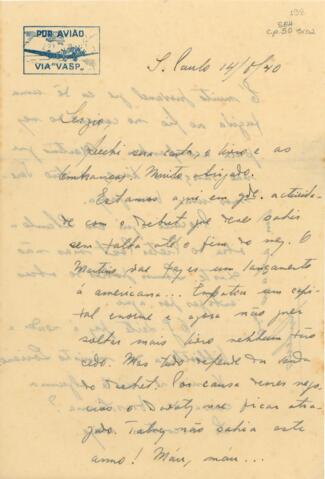 POR AVIÃO
VIA "VASP"
198
S. Paulo 14/8/40
Sergio
Recebi sua carta, o livro e as
lembranças. Muito obrigado.
Estamos aqui em gde. activida-
de com o Debret que deve sahir
sem falta até o fim do mez. O
Martins vae fazer um lançamento
á americana... Empatou um capi-
tal enorme e agora não quer
soltar mais livro nenhum tão
cedo. Mas tudo depende da venda
do Debret. Por causa desses nego-
cios, o vae ficar atra-
zado. Talvez não sahia este
anno! Máu, máu...